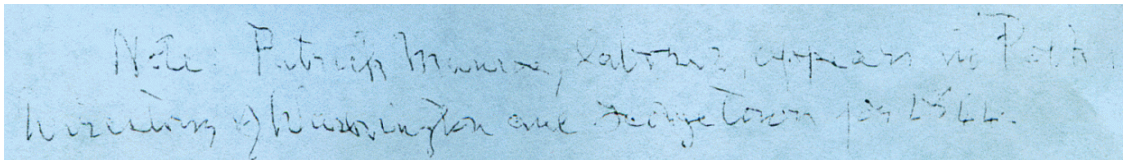 Note: Patrick Munroe, laborer, appears in Polk
Directory of Washington and Georgetown for